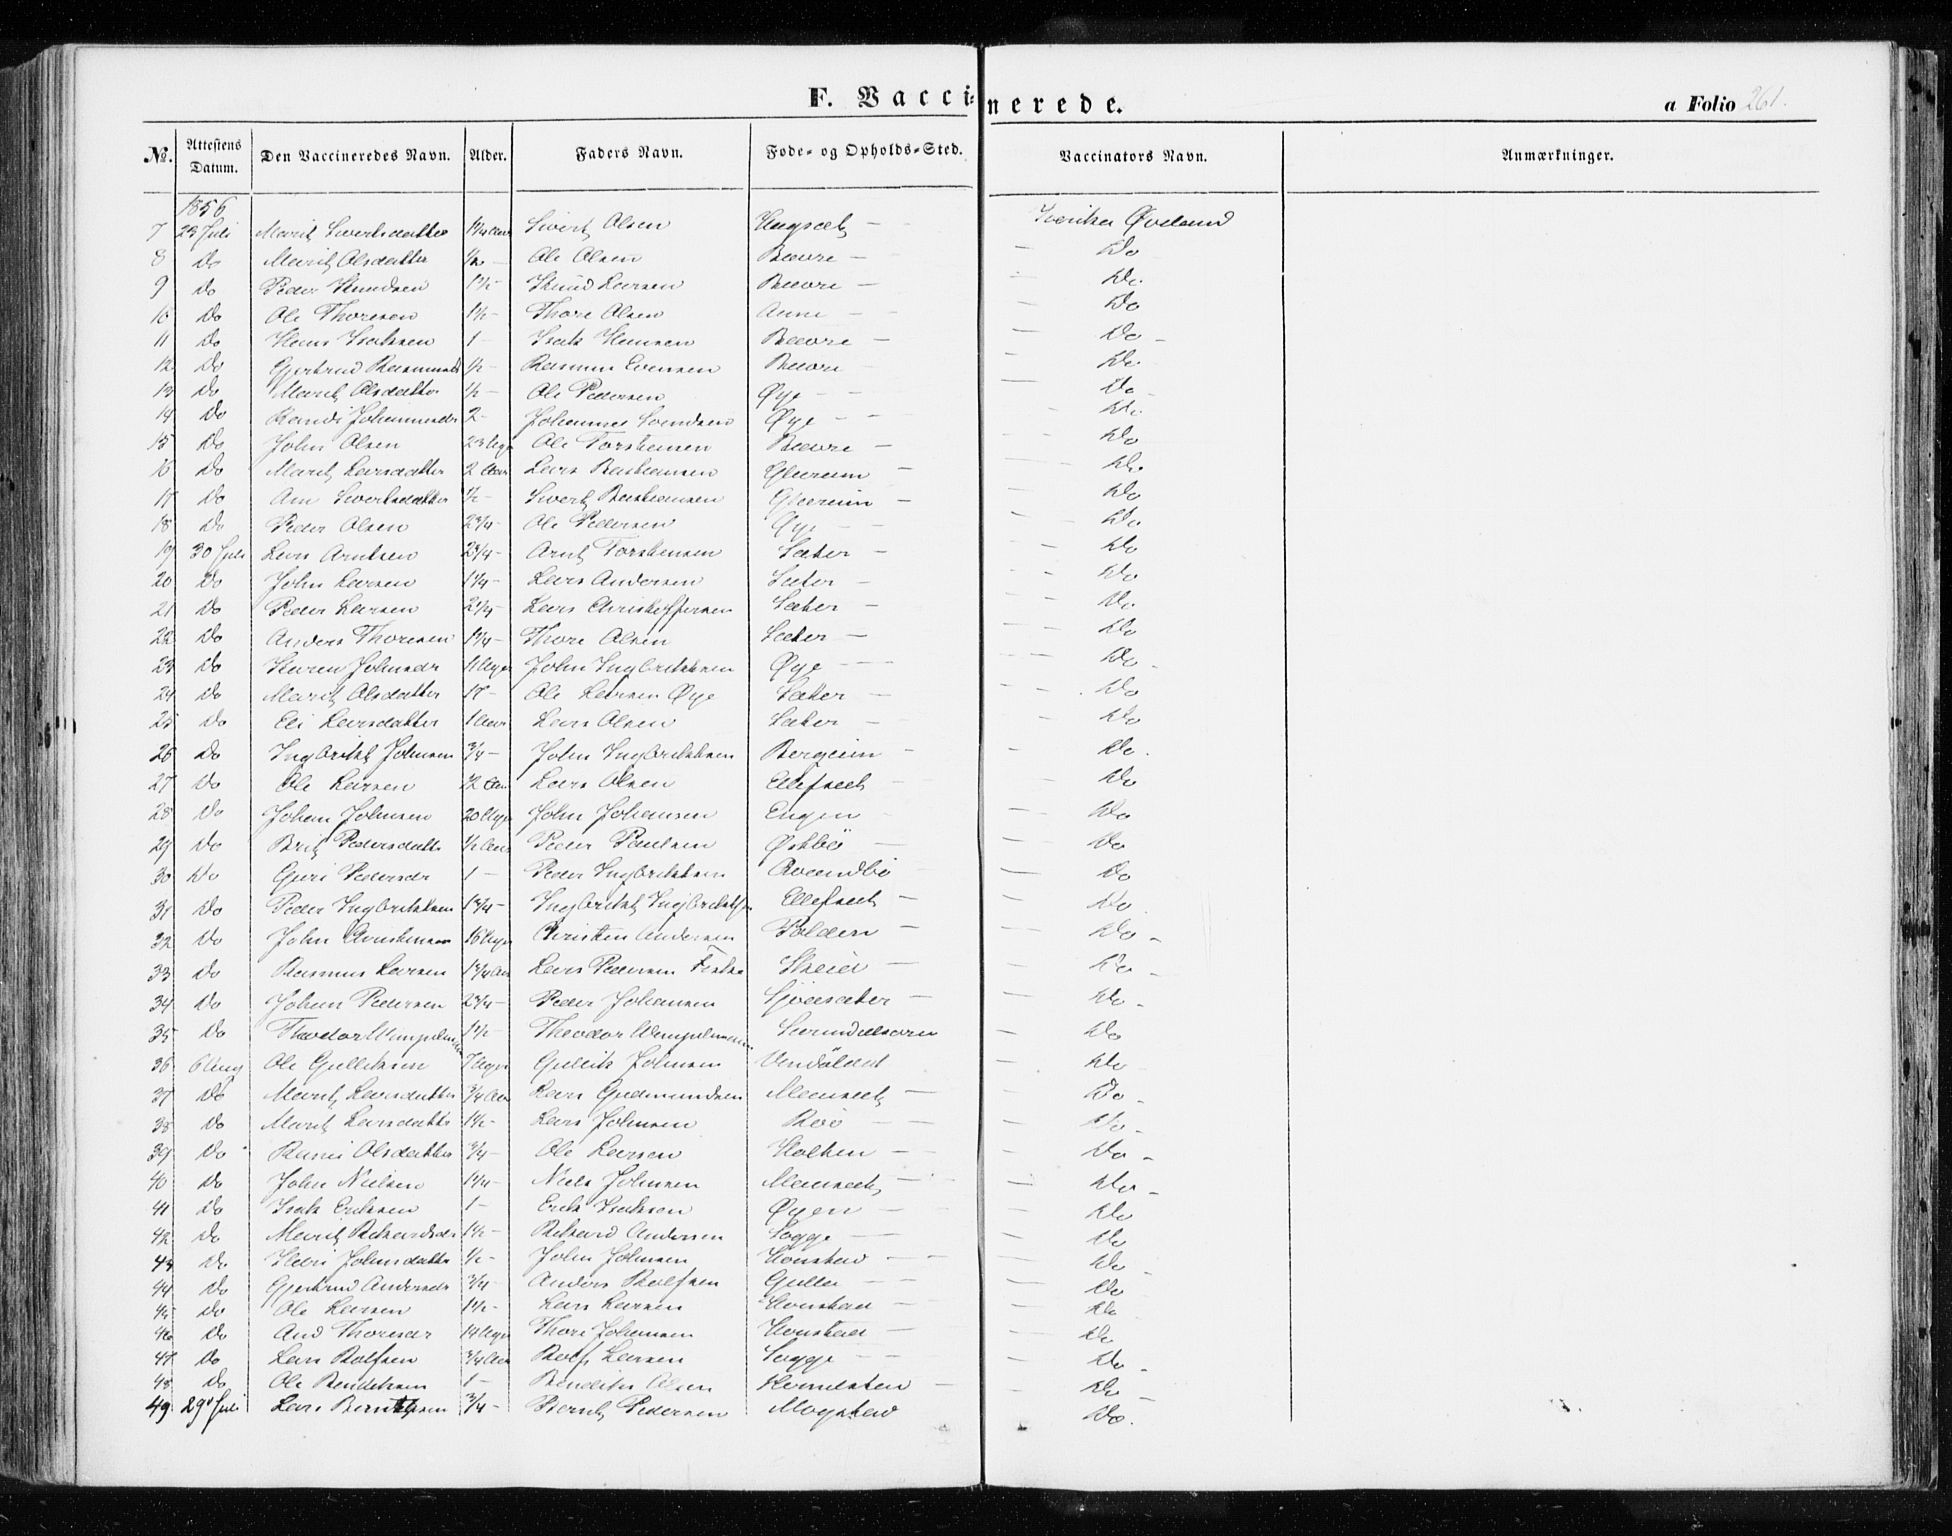 F. Vaccinerede. a Folio 261.
No. Attestens Datum. Den Vaccineredes Navn. Alder. Faders Navn. Føde- og Opholds-Sted. Vaccinators Navn. Anmærkninger.
1856
7 29 Juli Marit Sivertsdatter 1 1/4 Aar Sivert Olsen — Øveland
8 Do Marit Olsdatter 1/2 — Ole Olsen Bævre — — Do
9 Do Peder Knudsen 1 1/2 — Knud Larsen Bævre — — Do
10 Do Ole Thoresen 1 1/2 — Thore Olsen Aune — — — Do
11 Do Hans Isaksen 1 — Isak Hansen Bævre — — Do —
12 Do Gjertrud Rasmusd 1/2 — Rasmus Evensen Bævre — — Do
13 Do Marit Olsdatter 1/2 — Ole Pedersen Øye — — — Do
14 Do Randi Johannesdr 2 — Johannes Svendsen Øye — — — Do
15 Do John Olsen 23 Uger Ole Torstensen Bævre — — Do
16 Do Marit Larsdatter 2 Aar Lars Bastiansen Glærum — — Do
17 Do Ane Sivertsdatter 1/2 — Sivert Bastiansen Glærum — — Do
18 Do Peder Olsen 2 3/4 — Ole Pedersen Øye — — — — Do
19 30 Juli Lars Arntsen 2 3/4 — Arnt Torstensen Sæter — — — Do
20 Do John Larsen 1 1/4 — Lars Andersen Sæter — — — Do
21 Do Peder Larsen 2 1/4 — Lars Christoffersen Sæter — — — Do
22 Do Anders Thoresen 1 1/4 — Thore Olsen Sæter — — — Do
23 Do Karen Johnsdr 11 Uger John Ingbriktsen Øye — — — — Do —
24 Do Marit Olsdatter 18 — Ole Larsen Øye Sæter — — — Do
25 Do Eli Larsdatter 1 Aar Lars Olsen Sæter — — — Do
26 Do Ingbrikt Johnsen 3/4 — John Ingbriktsen Bergeim — — Do
27 Do Ole Larsen 1/2 Aar Lars Olsen Ellefsæt — — Do
28 Do Johan Johnsen 20 Uger John Johansen Engen — — Do
29 Do Brit Pedersdatter 1/2 Aar Peder Paulsen Østbø — — Do
30 Do Guri Pedersdr 1 — Peder Ingbriktsen — — Do
31 Do Peder Ingbriktsen 1 3/4 — Ingbrikt Ingbriktsen Ellefsæt — — Do
32 Do John Christensen 16 Uger Christen Andersen Polden — — Do —
33 Do Rasmus Larsen 1 3/4 Aar Lars Pedersen Fiske Skeid — — Do —
34 Do Johan Pedersen 2 3/4 — Peder Johansen Sjøasæter — — Do —
35 Do Theodor 1 1/2 — Theodor Surendalsøren — Do
36 6 Aug Ole Gulliksen 7 Uger Gullik Johnsen — Do
37 Do Marit Larsdatter 3/4 Aar Lars Gudmundsen — — Do —
38 Do Marit Larsdatter 1 1/2 — Lars Johnsen Bøe — — — Do —
39 Do Olsdatter 3/4 — Ole Larsen Holten — — — Do —
40 Do John Nielsen 1 1/4 — Niels Johnsen — — — Do —
41 Do Isak Eriksen 1 — Erik Isaksen Øyen — — — Do
42 Do Marit Rikardsdr 1 1/2 — Rikard Andersen Sogge — — — Do
43 Do Johnsdatter 1/2 — John Johnsen Honstad — — — Do —
44 Do Gjertrud Andersdr 3/4 — Anders Rolfsen Gulla — — — Do
45 Do Ole Larsen 1 1/2 — Lars Larsen Honstad — — Do
46 Do And Thoresdr 14 Uger Thore Johansen Honstad — — Do
47 Do Lars Rolfsen 3/4 Aar Rolf Larsen Sogge — — — Do —
48 Do Ole Bendiksen 1 — Bendik Olsen — — Do —
49 29 Juli Lars Berntsen 3/4 — Bernt Pedersen Mogstad — Do.